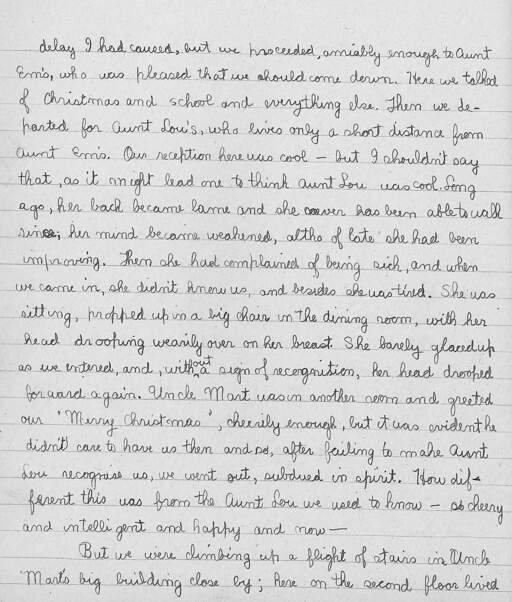 delay I had caused, but we proceeded, amiably enough to Aunt
Em's, who was pleased that we should come down. Here we talked
of Christmas and school and everything else. Then we de-
parted for Aunt Lou's, who lives only a short distance from
Aunt Em's. Our reception here was cool – but I shouldn't say
that, as it might lead one to think Aunt Lou was cool. Long
ago, her back became lame and she never has been able to walk
since; her mind became weakened, altho of late she had been
improving. Then she had complained of being sick, and when
we came in, she didn't know us, and besides she was tired. She was
sitting, propped up in a big chair in the dining room, with her
head drooping wearily over on her breast. She barely glanced up
as we entered, and, without sign of recognition, her head drooped
forward again. Uncle Mart was in another room and greeted
our "Merry Christmas", cheerily enough, but it was evident he
didn't care to have us then and so, after failing to make Aunt
Lou recognise us, we went out, subdued in spirit. How dif-
ferent this was from the Aunt Lou we used to know – so cheery
and intelligent and happy and now —
But we were climbing up a flight of stairs in Uncle
Mart's big building close by; here on the second floor lived